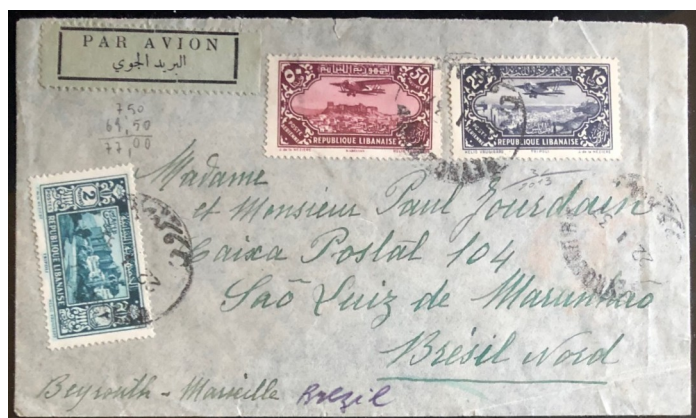 PAR AVION
البريد الجوي
750
69,50
77,00
50
REPUBLIQUE LIBANAISE
25
REPUBLIQUE LIBANAISE
2
REPUBLIQUE LIBANAISE
Madame
et Monsieur Paul Jourdain
Caixa Postal 104
Saõ Luiz de Maranhão
Brésil Nord
Beyrouth - Marseille Brezil